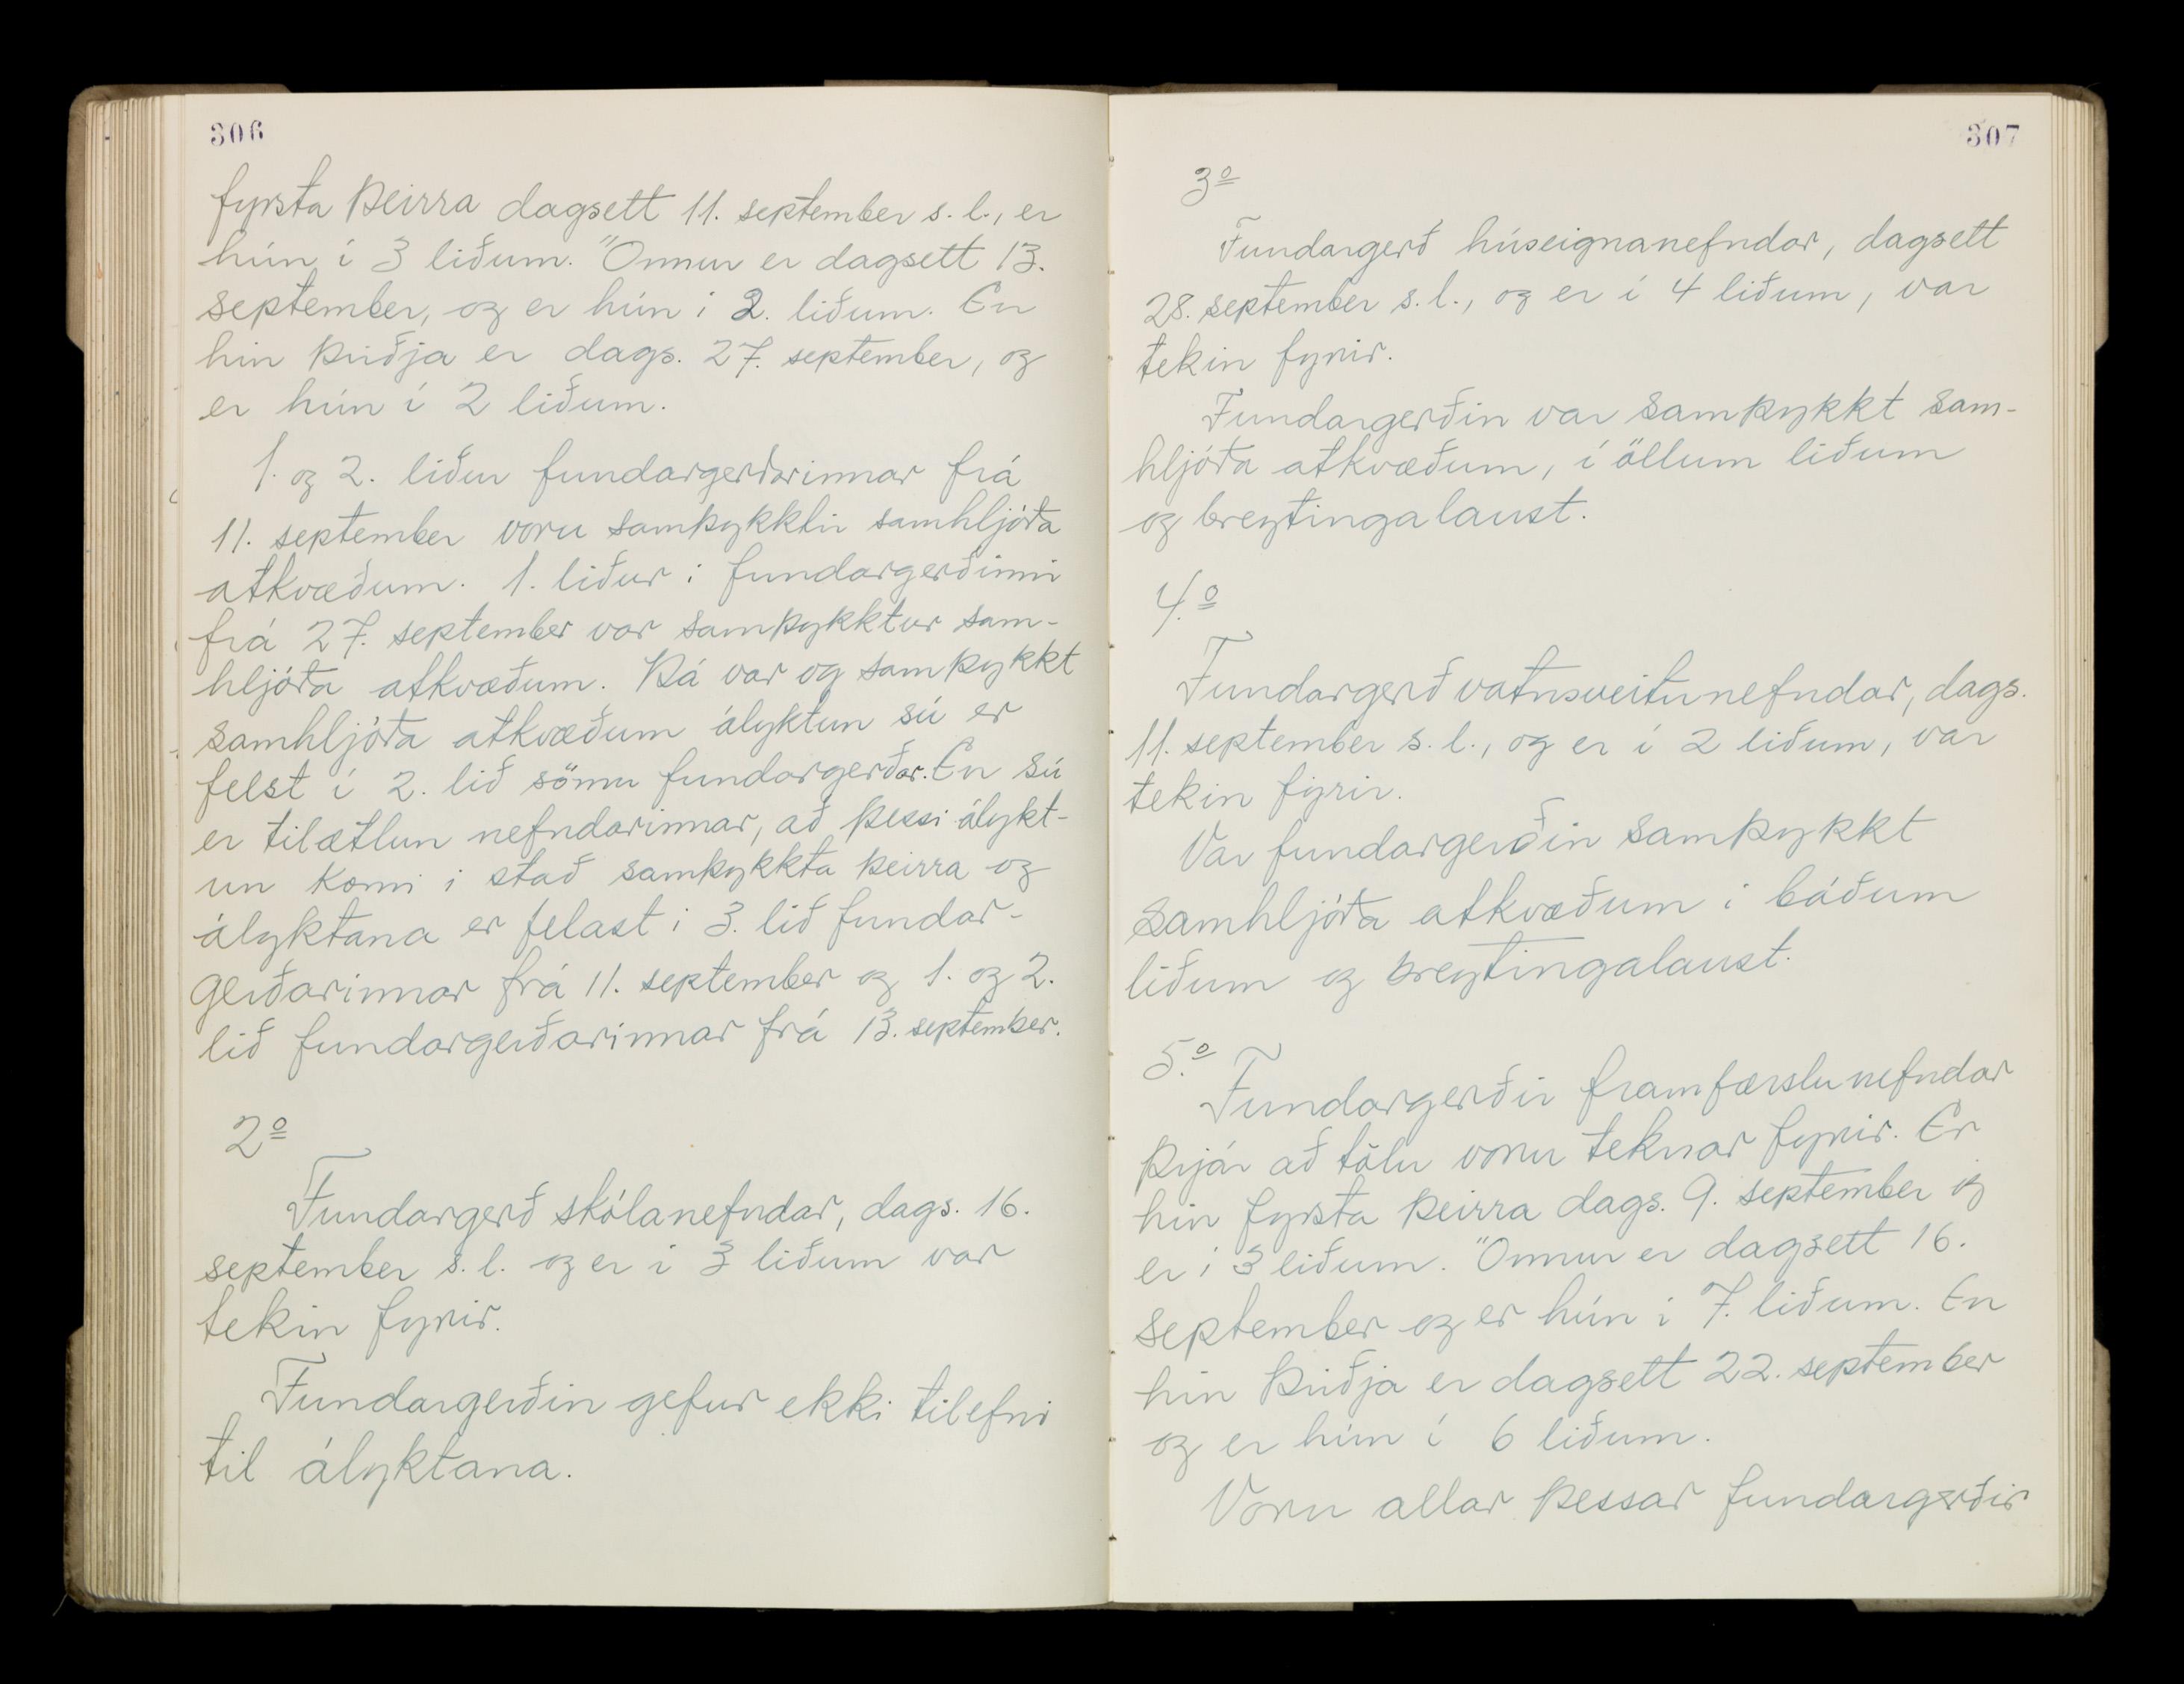 306
fyrsta þeirra dagsett 11. september s.l., er
hún í 3 liðum. Önnur er dagsett 13.
september, og er hún i 2. liðum. En
hin þriðja er dags. 27. september, og
er hún í 2 liðum.
1. og 2. liður fundargerðarinnar frá
11. september voru samþykktir samhljóða
atkvæðum. 1. liður i fundargerðinni
frá 27. september var samþykktur sam-
hljóða atkvæðum. Þá var og samþykkt
samhljóða atkvæðum ályktun sú er
felst í 2. lið sömu fundargerðar. En sú
er tilætlun nefndarinnar, að þessi álykt-
un komi i stað samþykkta þeirra og
ályktana er felast i 3. lið fundar-
gerðarinnar frá 11. september og 1. og 2.
lið fundargerðarinnar frá 13. september.
2º
Fundargerð skólanefndar, dags. 16.
september s.l. og er i 3 liðum var
tekin fyrir.
Fundargerðin gefur ekki tilefni
til ályktana.
307
3º
Fundargerð húseignanefndar, dagsett
28. september s.l., og er í 4 liðum, var
tekin fyrir.
Fundargerðin var samþykkt sam-
hljóða atkvæðum, í öllum liðum
og breytingalaust.
4.º
Fundargerð vatnsveitunefndar, dags.
11. september s.l., og er í 2 liðum, var
tekin fyrir.
Var fundargerðin samþykkt
samhljóða atkvæðum i báðum
liðum og breytingalaust.
5.º
Fundargerðir framfærslunefndar
þrjár að tölu voru teknar fyrir. Er
hin fyrsta þeirra dags. 9. september og
er i 3 liðum. Önnur er dagsett 16.
september og er hún i 7. liðum. En
hin þriðja er dagsett 22. september
og er hún í 6 liðum.
Voru allar þessar fundargerðir